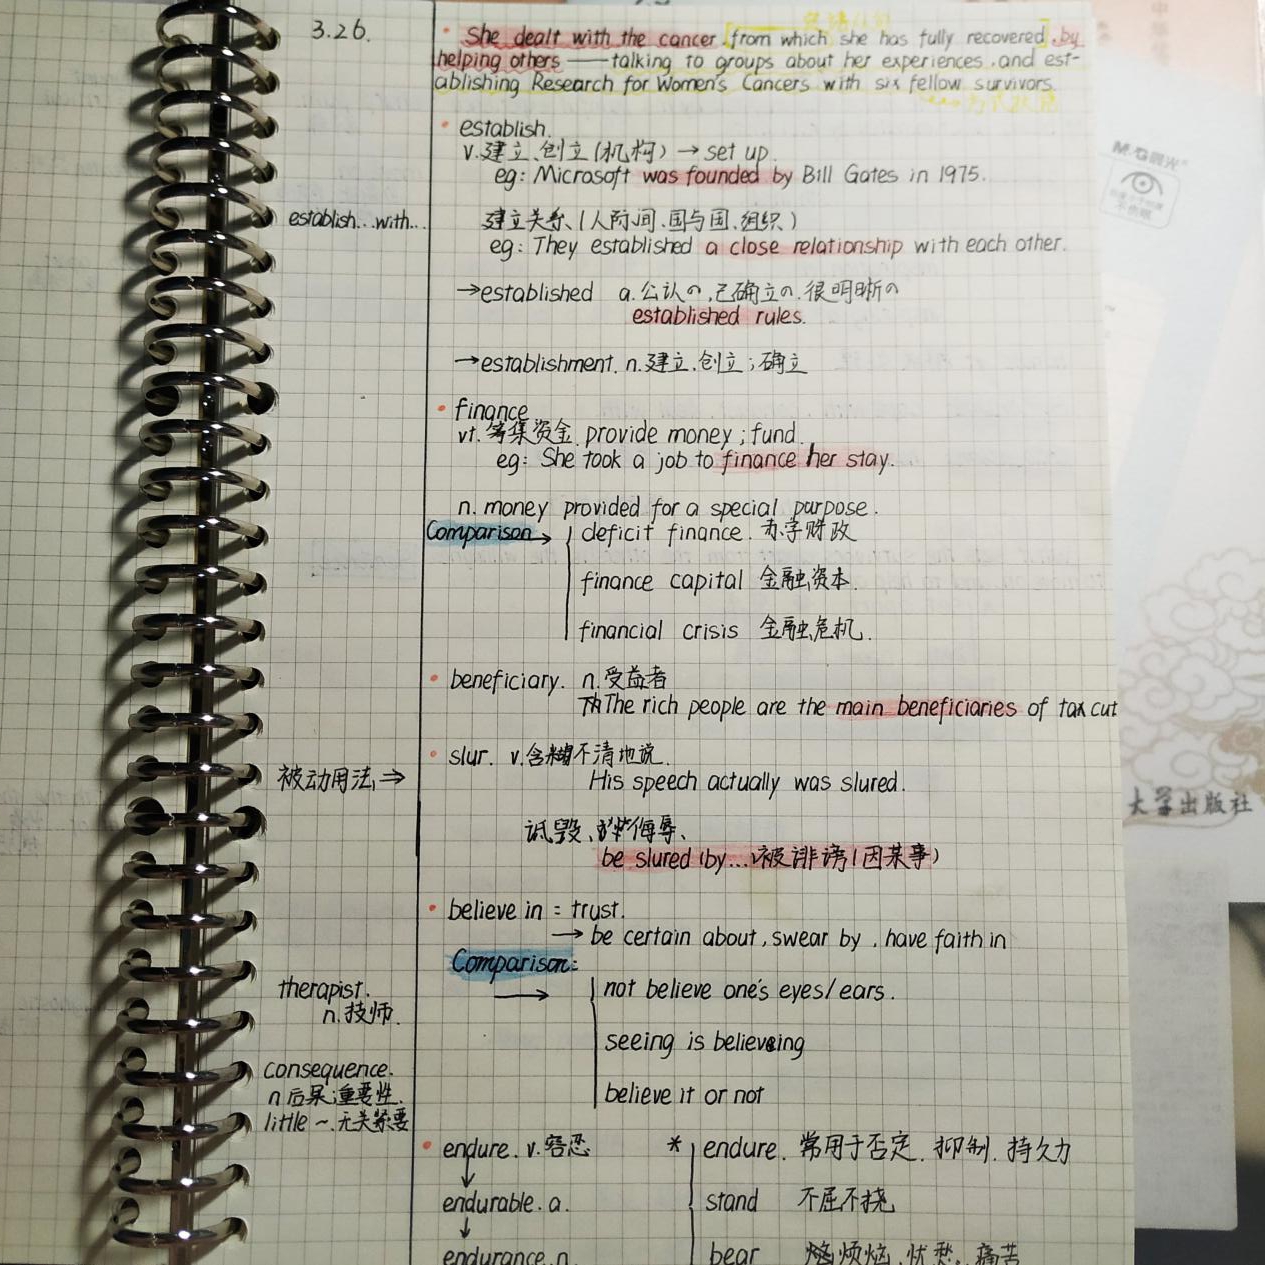 3.26.
She dealt with the cancer from which she has fully recovered, by
helping others —— talking to groups about her experiences, and est-
ablishing Research for Women's Cancers with six fellow survivors.
establish.
v.建立、创立(机构) → set up.
eg: Microsoft was founded by Bill Gates in 1975.
establish...with...
建立关系、(人际间、国与国、组织)
eg: They established a close relationship with each other.
→established a.公认の、已确立の、很明晰の
established rules.
→establishment. n.建立、创立;确立
finance
vt.筹集资金. provide money; fund.
eg: She took a job to finance her stay.
n. money provided for a special purpose.
Comparison→
deficit finance. 赤字财政
finance capital 金融资本.
financial crisis 金融危机.
beneficiary. n.受益者
The rich people are the main beneficiaries of tax cut
slur. v.含糊不清地说.
被动用法⇒
His speech actually was slured.
诋毁、侮辱、
be slured (by... 被诽谤(因某事)
believe in = trust.
→ be certain about, swear by, have faith in
Comparison:
→
not believe one's eyes/ears.
therapist.
n.技师.
seeing is believing
consequence.
n后果;重要性.
little ~.无关紧要
believe it or not
endure. v.容忍
* endure. 常用于否定、抑制、持久力
↓
endurable. a.
stand 不屈不挠
↓
endurance. n.
bear 烦恼、忧愁、痛苦
M&G晨光
大学出版社